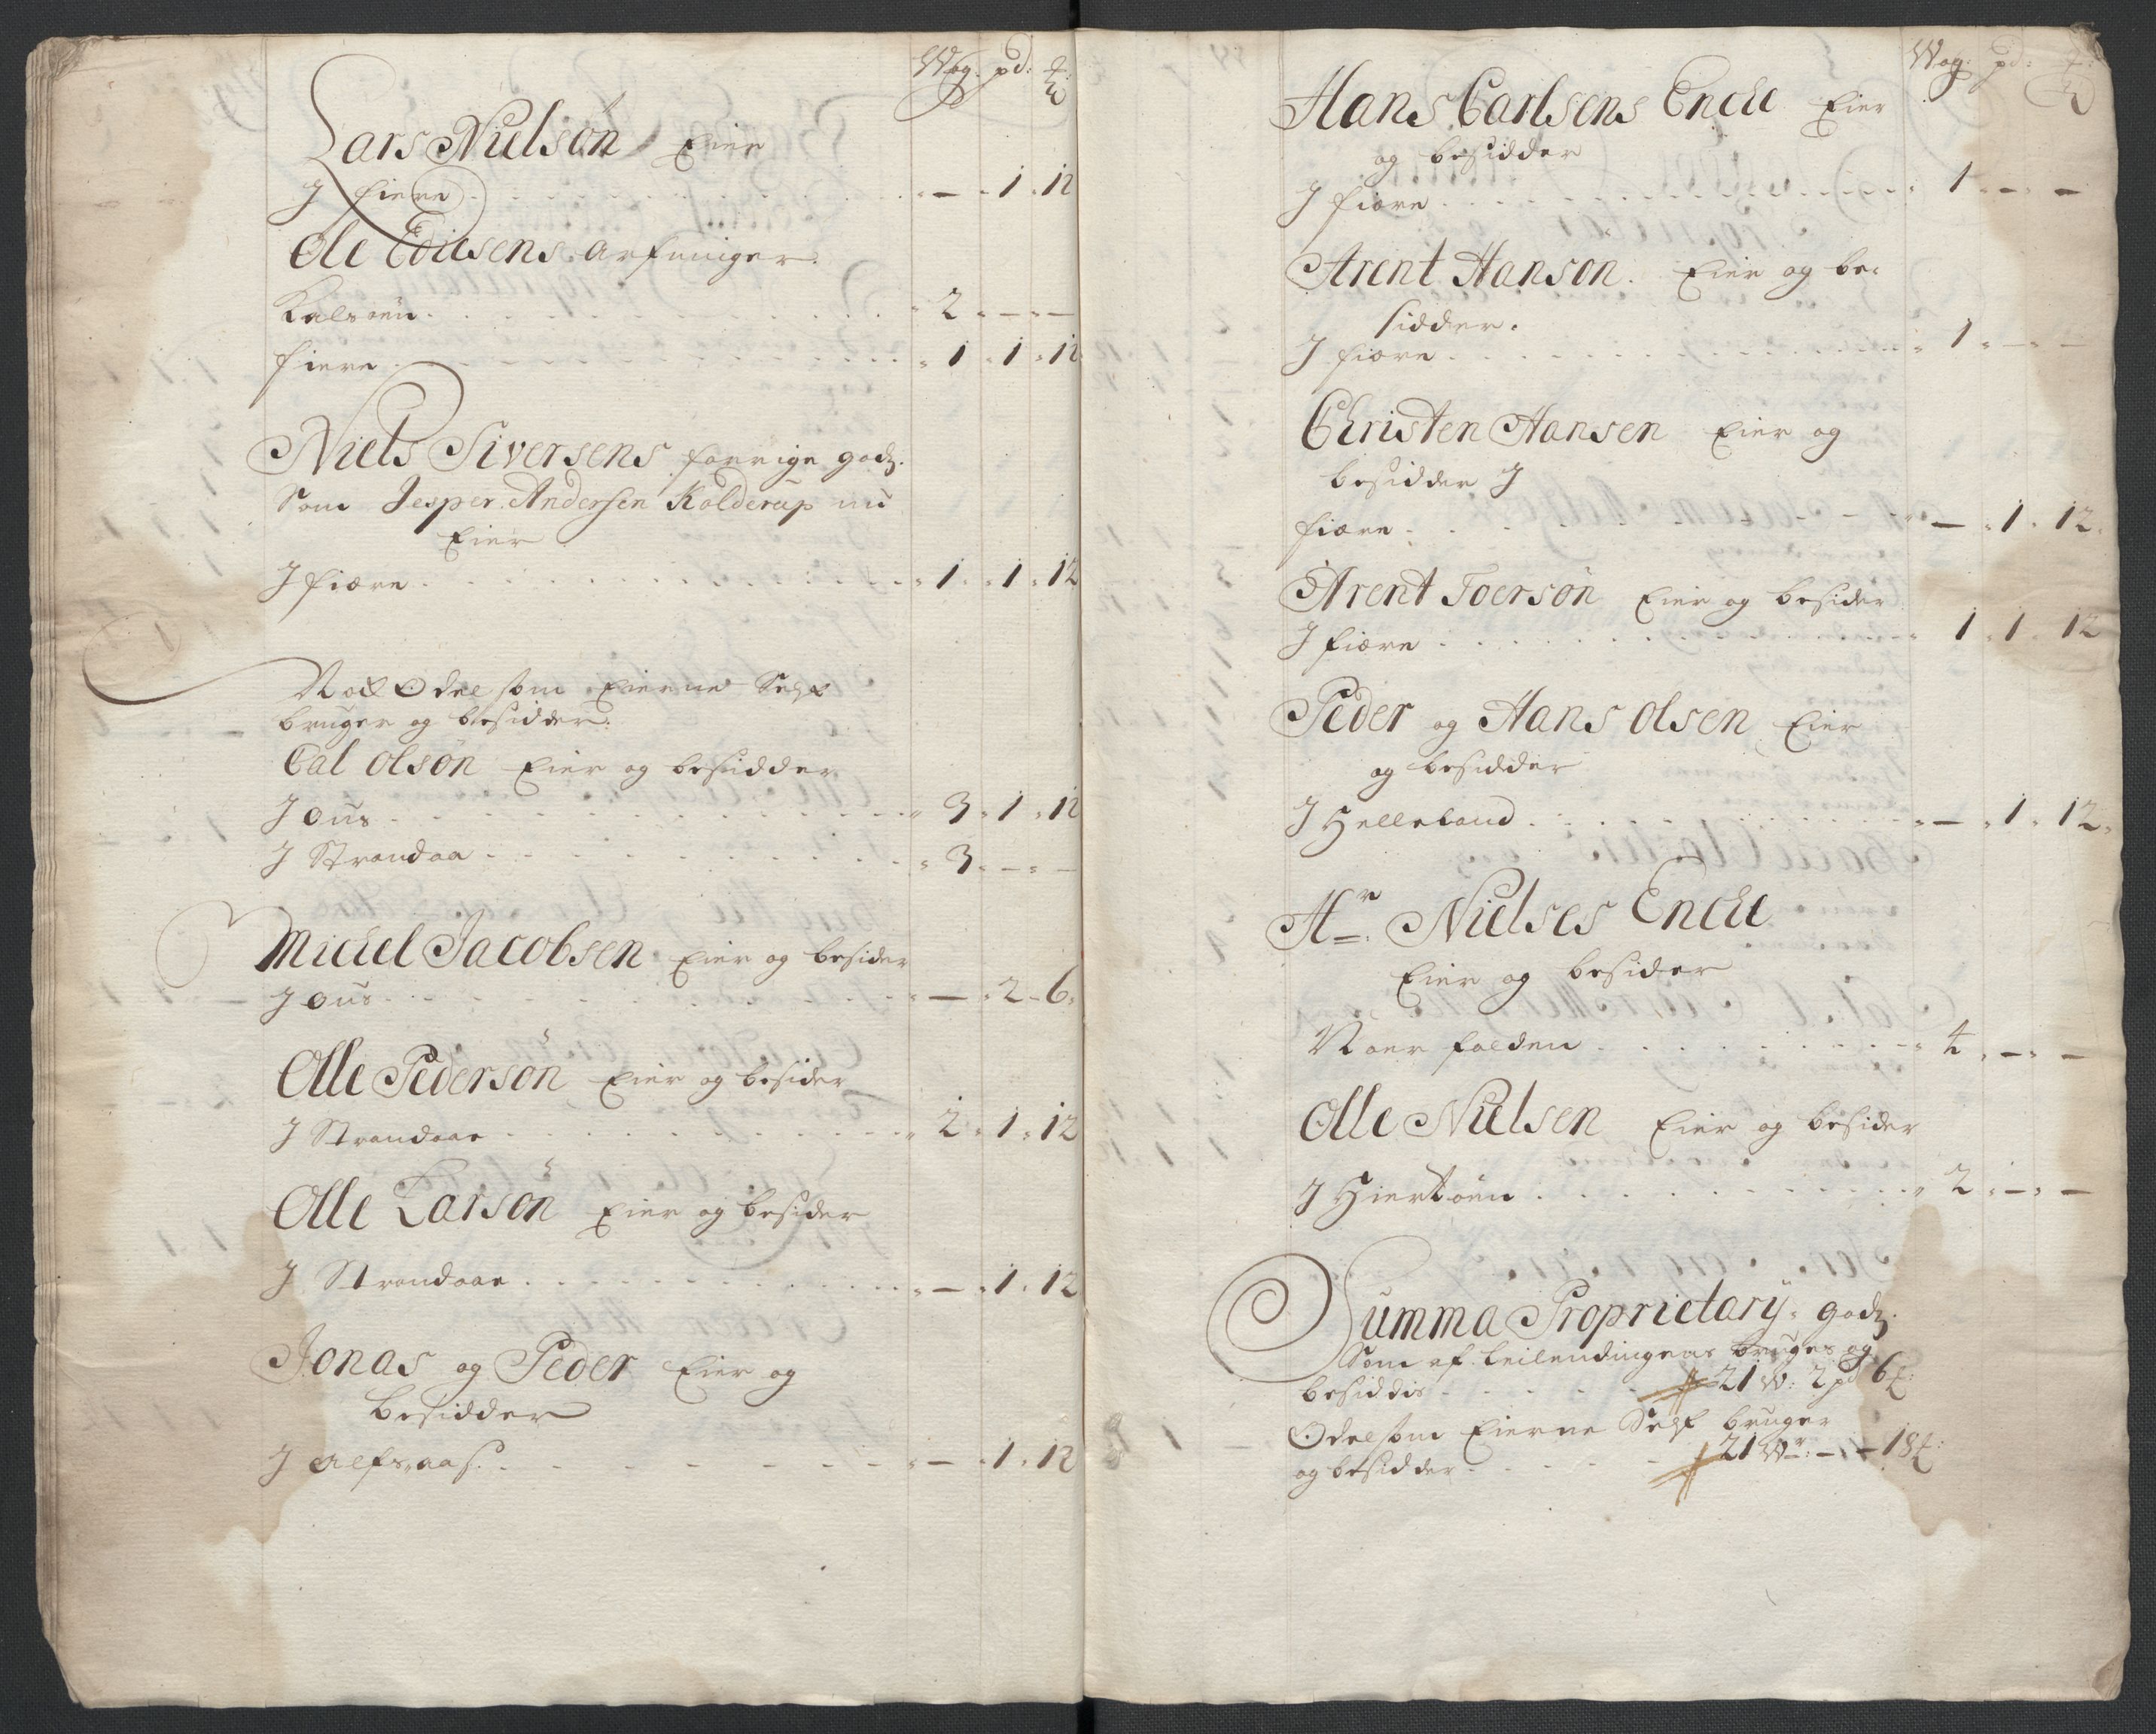 Wog: pd: ℔
Lars Nielsøn Eier
J fiere — 1 12
Ole Ediusens Arfuinger
Kalsøen 2 — —
fiere 1 1 12
Niels Siversens forrige godz.
Som Jesper Andersen Kolderup nu
Eier
J fiære 1 1 12
Noch Odel som Eierne Self
bruger og besidder
Cal Olsøn Eier og besidder
J ous 3 1 12
J Strandaa 3 — —
Michel Jacobsen Eier og besider
J ous — 2 6
Olle Pedersøn Eier og besider
J Strandaae 2 1 12
Olle Larsøn Eier og besider
J Strandaae — 1 12
Jonas og Peder Eier og
besidder
J Alfsaas — 1 12
Wog: pd: ℔
Hans Carlsens Encke Eier
og besidder
J fiære 1 — —
Arent Hanson Eier og be-
sidder.
J fiære 1 — —
Christen Hansen Eier og
besidder J
fiære — 1 12
Arent Toersøn Eier og besider
J fiære 1 1 12
Peder og Hans Olsen Eier
og besidder
J Helleland — 1 12
Hr. Nielses Encke
Eier og besider
Noer folden 4 — —
Olle Nielsen Eier og besider
J Hiertøen 2 — —
Summa Proprietarij godz.
Som af Leilendingene bruges og
besiddis 21 W: 2 pd 6 ℔:
Odel som Eierne Self bruger
og besidder 21 Wr: — 18 ℔: